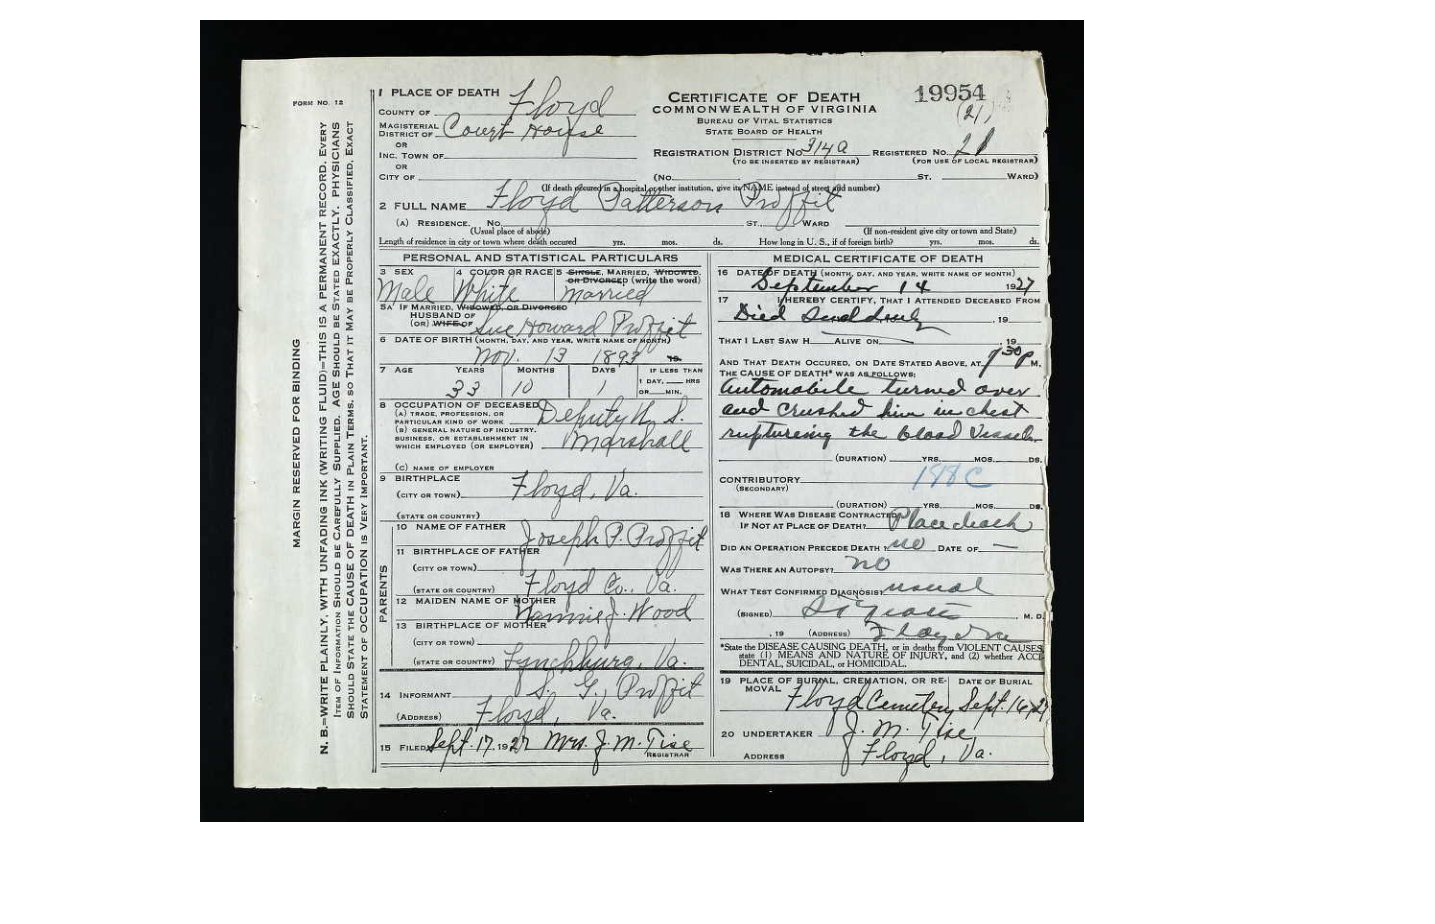 FORM NO. 12
MARGIN RESERVED FOR BINDING
N. B.—WRITE PLAINLY, WITH UNFADING INK (WRITING FLUID)—THIS IS A PERMANENT RECORD. EVERY
ITEM OF INFORMATION SHOULD BE CAREFULLY SUPPLIED. AGE SHOULD BE STATED EXACTLY. PHYSICIANS
SHOULD STATE THE CAUSE OF DEATH IN PLAIN TERMS, SO THAT IT MAY BE PROPERLY CLASSIFIED. EXACT
STATEMENT OF OCCUPATION IS VERY IMPORTANT.
1 PLACE OF DEATH
COUNTY OF Floyd
MAGISTERIAL DISTRICT OF Court House
OR
INC. TOWN OF
OR
CITY OF
CERTIFICATE OF DEATH
COMMONWEALTH OF VIRGINIA
BUREAU OF VITAL STATISTICS
STATE BOARD OF HEALTH
19954
(21)
REGISTRATION DISTRICT NO 314a REGISTERED NO. 21
(TO BE INSERTED BY REGISTRAR) (FOR USE OF LOCAL REGISTRAR)
(NO. ST. WARD)
(If death occured in a hospital or other institution, give its NAME instead of street and number)
2 FULL NAME Floyd Patterson Proffit
(A) RESIDENCE. No. ST., WARD
(Usual place of abode) (If non-resident give city or town and State)
Length of residence in city or town where death occured yrs. mos. ds. How long in U. S., if of foreign birth? yrs. mos. ds.
PERSONAL AND STATISTICAL PARTICULARS
3 SEX Male
4 COLOR OR RACE White
5 SINGLE, MARRIED, WIDOWED, OR DIVORCED (write the word) Married
5A IF MARRIED, WIDOWED, OR DIVORCED
HUSBAND OF
(OR) WIFE OF Sue Howard Proffit
6 DATE OF BIRTH (MONTH, DAY, AND YEAR, WRITE NAME OF MONTH)
Nov. 13 1893 19
7 AGE YEARS MONTHS DAYS IF LESS THAN
1 DAY, HRS
OR MIN.
33 10 1
8 OCCUPATION OF DECEASED
(A) TRADE, PROFESSION, OR
PARTICULAR KIND OF WORK Deputy U. S.
(B) GENERAL NATURE OF INDUSTRY,
BUSINESS, OR ESTABLISHMENT IN
WHICH EMPLOYED (OR EMPLOYER) Marshall
(C) NAME OF EMPLOYER
9 BIRTHPLACE
(CITY OR TOWN) Floyd, Va.
(STATE OR COUNTRY)
PARENTS
10 NAME OF FATHER Joseph P. Proffit
11 BIRTHPLACE OF FATHER
(CITY OR TOWN)
(STATE OR COUNTRY) Floyd Co., Va.
12 MAIDEN NAME OF MOTHER Nannie J. Wood
13 BIRTHPLACE OF MOTHER
(CITY OR TOWN)
(STATE OR COUNTRY) Lynchburg, Va.
14 INFORMANT S. G. Proffit
(ADDRESS) Floyd, Va.
15 FILED Sept. 17, 1927 Mrs. J. M. Tise
REGISTRAR
MEDICAL CERTIFICATE OF DEATH
16 DATE OF DEATH (MONTH, DAY, AND YEAR, WRITE NAME OF MONTH)
September 14 1927
17 I HEREBY CERTIFY, THAT I ATTENDED DECEASED FROM
Died Suddenly , 19
THAT I LAST SAW H ALIVE ON , 19
AND THAT DEATH OCCURED, ON DATE STATED ABOVE, AT 9 30 P M.
THE CAUSE OF DEATH* WAS AS FOLLOWS:
Automobile turned over
and crushed him in chest
ruptureing the blood vessels
(DURATION) YRS. MOS. DS.
188C
CONTRIBUTORY
(SECONDARY)
(DURATION) YRS. MOS. DS.
18 WHERE WAS DISEASE CONTRACTED
IF NOT AT PLACE OF DEATH? Place death
DID AN OPERATION PRECEDE DEATH? no DATE OF —
WAS THERE AN AUTOPSY? no
WHAT TEST CONFIRMED DIAGNOSIS? usual
(SIGNED) M. D.
, 19 (ADDRESS) Floyd Va
*State the DISEASE CAUSING DEATH, or in deaths from VIOLENT CAUSES,
state (1) MEANS AND NATURE OF INJURY, and (2) whether ACCI
DENTAL, SUICIDAL, or HOMICIDAL.
19 PLACE OF BURIAL, CREMATION, OR RE-
MOVAL DATE OF BURIAL
Floyd Cemetery Sept. 16, 27
20 UNDERTAKER J. M. Tise
ADDRESS Floyd, Va.